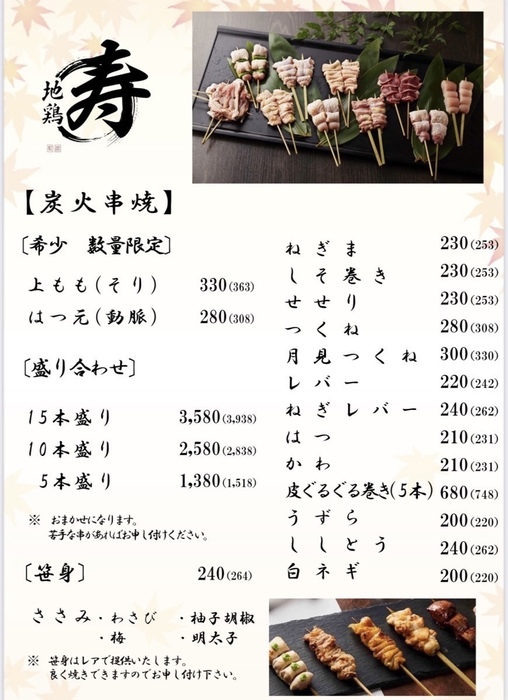 地鶏 寿
【炭火串焼】
〔希少 数量限定〕
上もも(そり) 330(363)
はつ元(動脈) 280(308)
〔盛り合わせ〕
15本盛り 3,580(3,938)
10本盛り 2,580(2,838)
5本盛り 1,380(1,518)
※ おまかせになります。
苦手な串があればお申し付けください。
〔笹身〕 240(264)
ささみ・わさび ・柚子胡椒
・梅 ・明太子
※ 笹身はレアで提供いたします。
良く焼きできますのでお申し付け下さい。
ねぎま 230(253)
しそ巻き 230(253)
せせり 230(253)
つくね 280(308)
月見つくね 300(330)
レバー 220(242)
ねぎレバー 240(262)
はつ 210(231)
かわ 210(231)
皮ぐるぐる巻き(5本) 680(748)
うずら 200(220)
ししとう 240(262)
白ネギ 200(220)